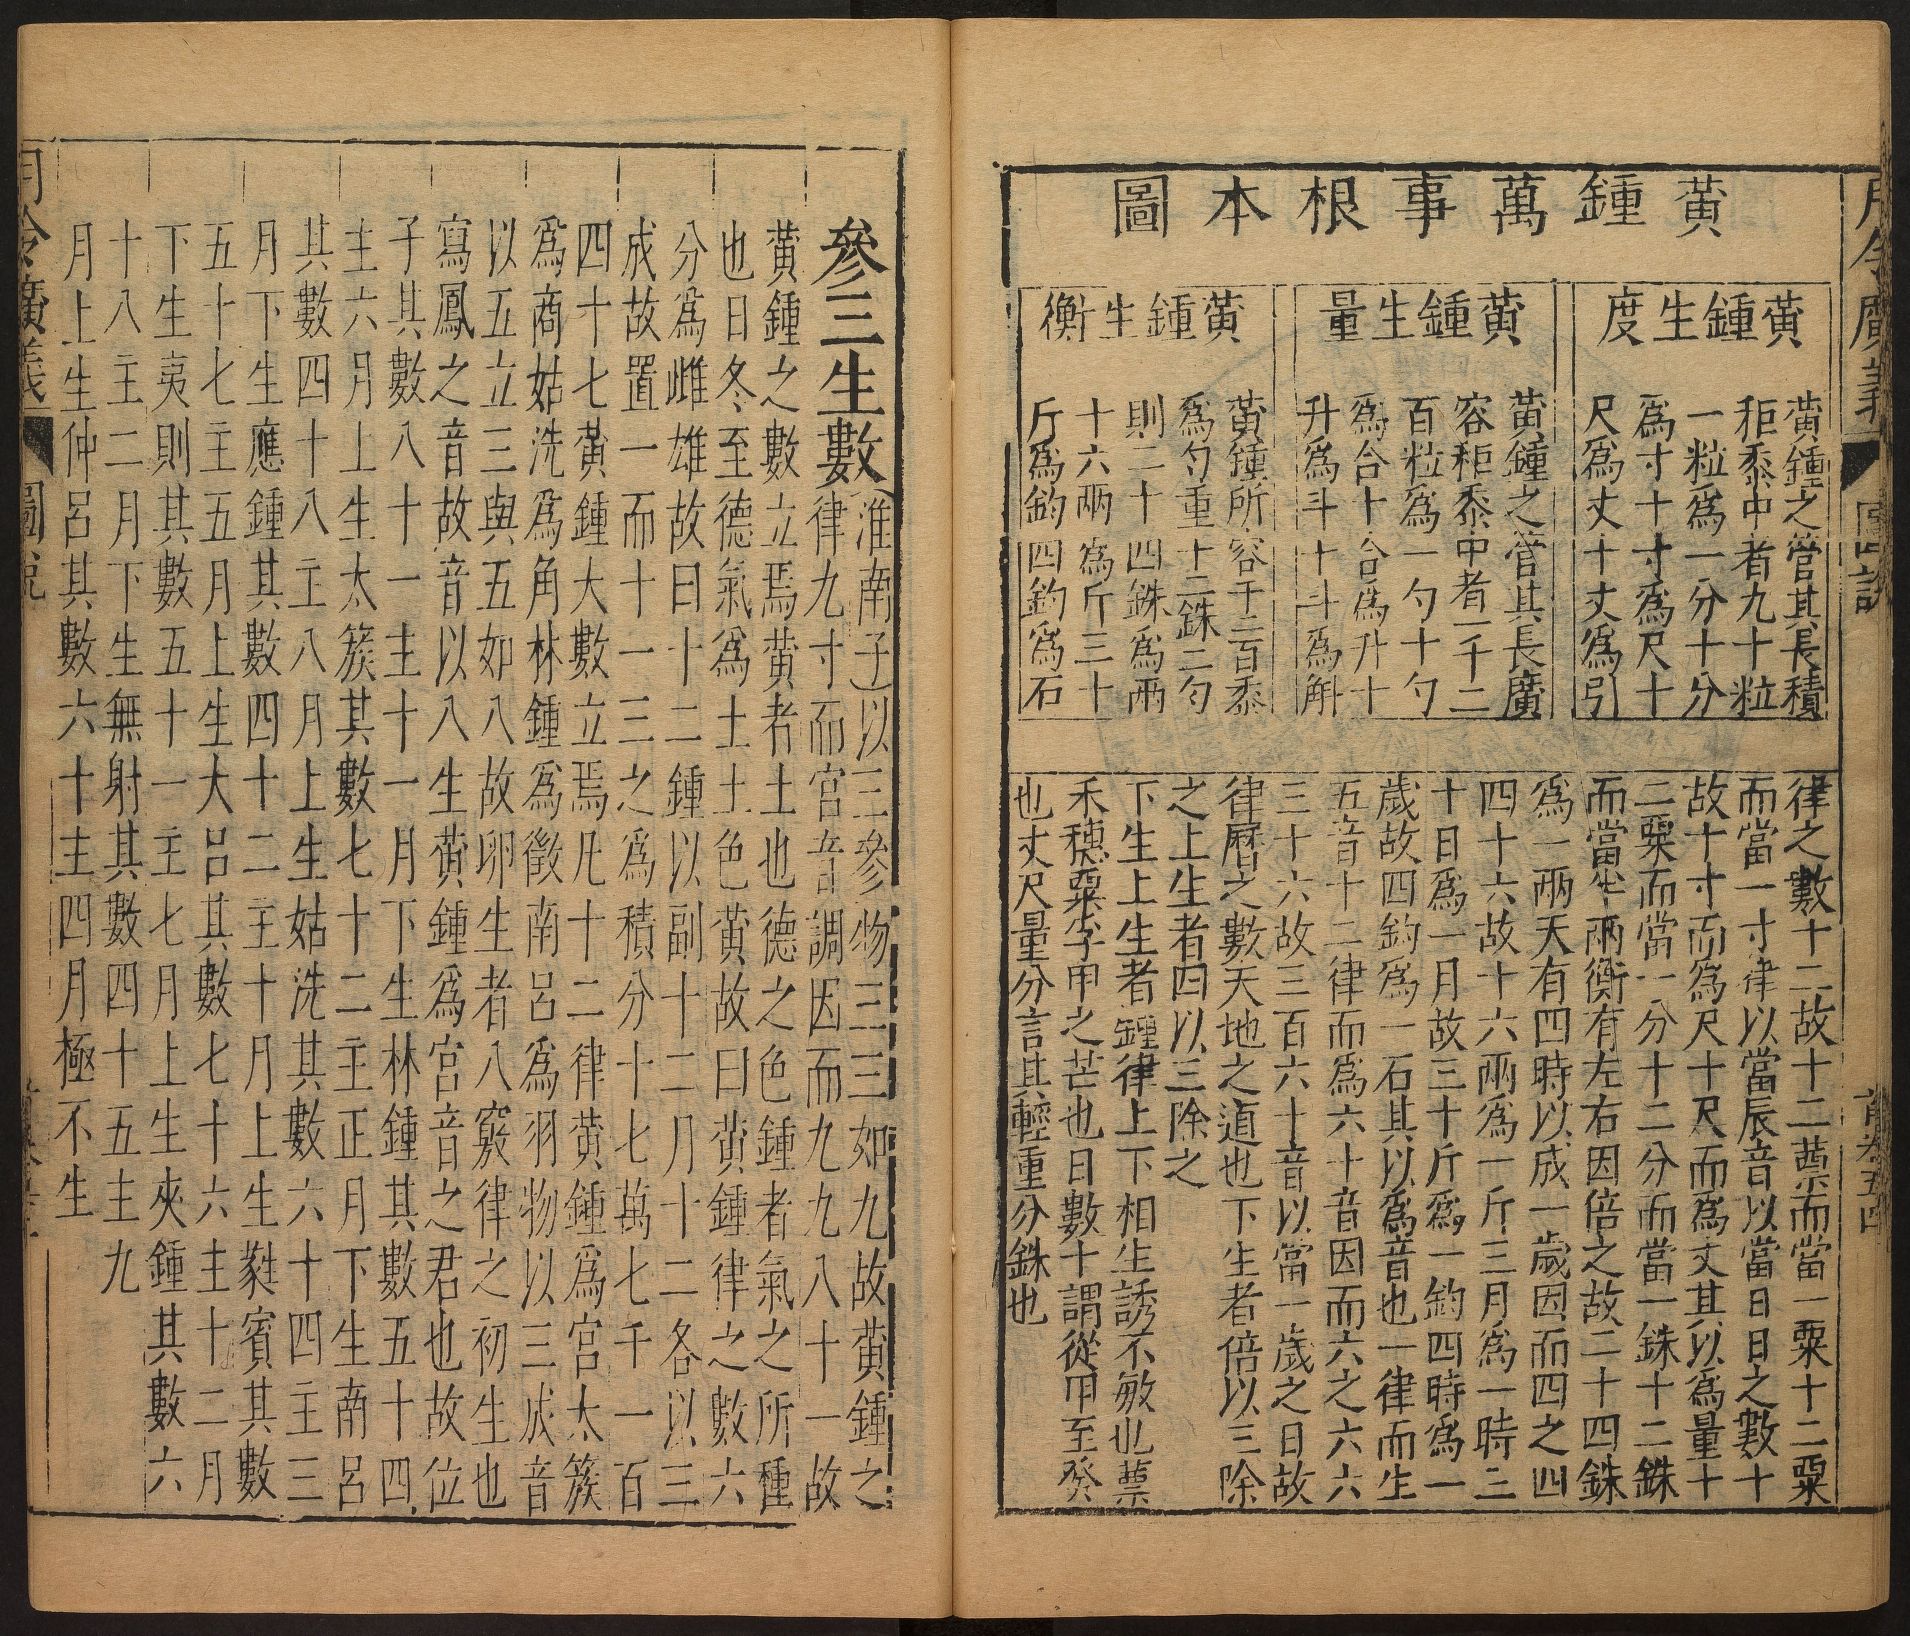 月令廣義
圖說
首卷五十四
黃鍾萬事根本圖
黃鍾生度
黃鍾之管其長積
秬黍中者九十粒
一粒爲一分十分
爲寸十寸爲尺十
尺爲丈十丈爲引
黃鍾生量
黃鍾之管其長廣
容秬黍中者一千二
百粒爲一勺十勺
爲合十合爲升十
升爲斗十斗爲斛
黃鍾生衡
黃鍾所容千二百黍
爲勺重十二銖二勺
則二十四銖爲兩
十六兩爲斤三十
斤爲鈞四鈞爲石
律之數十二故十二蔈而當一粟十二粟
而當一寸律以當辰音以當日日之數十
故十寸而爲尺十尺而爲丈其以爲量十
二粟而當一分十二分而當一銖十二銖
而當半兩衡有左右因倍之故二十四銖
爲一兩天有四時以成一歲因而四之四
四十六故十六兩爲一斤三月爲一時三
十日爲一月故三十斤爲一鈞四時爲一
歲故四鈞爲一石其以爲音也一律而生
五音十二律而爲六十音因而六之六六
三十六故三百六十音以當一歲之日故
律曆之數天地之道也下生者倍以三除
之上生者四以三除之
下生上生者鍾律上下相生誘不敏也蔈
禾穗粟孚甲之芒也日數十謂從甲至癸
也丈尺量分言其輕重分銖也
參三生數(淮南子)以三參物三三如九故黃鍾之
律九寸而宮音調因而九九八十一故
黃鍾之數立焉黃者土也德之色鍾者氣之所種
也日冬至德氣爲土土色黃故曰黃鍾律之數六
分爲雌雄故曰十二鍾以副十二月十二各以三
成故置一而十一三之爲積分十七萬七千一百
四十七黃鍾大數立焉凡十二律黃鍾爲宮太簇
爲商姑洗爲角林鍾爲徵南呂爲羽物以三成音
以五立三與五如八故卵生者八竅律之初生也
寫鳳之音故音以八生黃鍾爲宮音之君也故位
子其數八十一主十一月下生林鍾其數五十四
主六月上生太簇其數七十二主正月下生南呂
其數四十八主八月上生姑洗其數六十四主三
月下生應鍾其數四十二主十月上生蕤賓其數
五十七主五月上生大呂其數七十六主十二月
下生夷則其數五十一主七月上生夾鍾其數六
十八主二月下生無射其數四十五主九
月上生仲呂其數六十主四月極不生
月令廣義
圖說